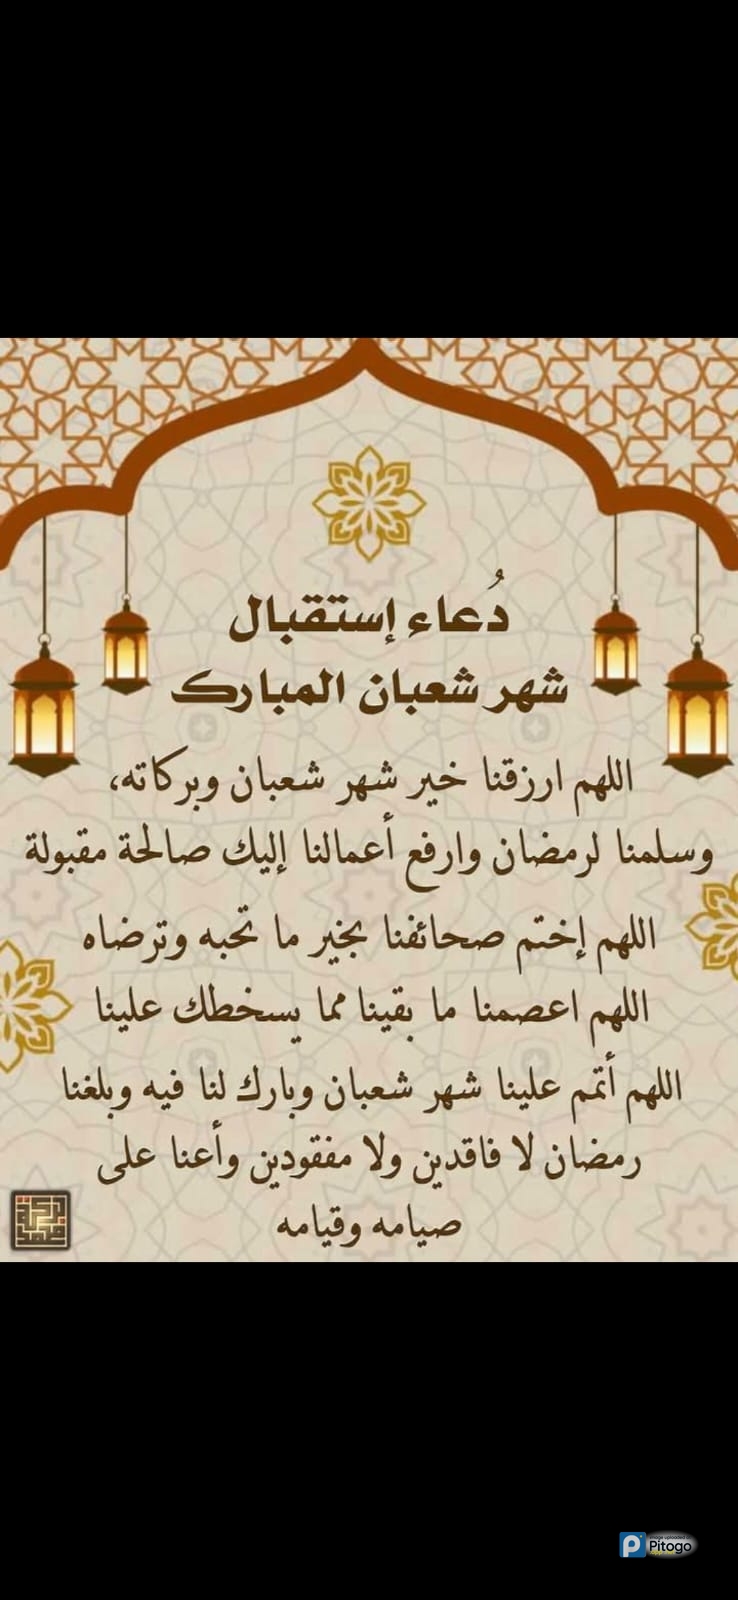 دُعاء إستقبال
شهر شعبان المبارك
اللهم ارزقنا خير شهر شعبان وبركاته،
وسلمنا لرمضان وارفع أعمالنا إليك صالحة مقبولة
اللهم إختم صحائفنا بخير ما تحبه وترضاه
اللهم اعصمنا ما بقينا مما يسخطك علينا
اللهم أتمم علينا شهر شعبان وبارك لنا فيه وبلغنا
رمضان لا فاقدين ولا مفقودين وأعنا على
صيامه وقيامه
Image uploaded
Pitogo